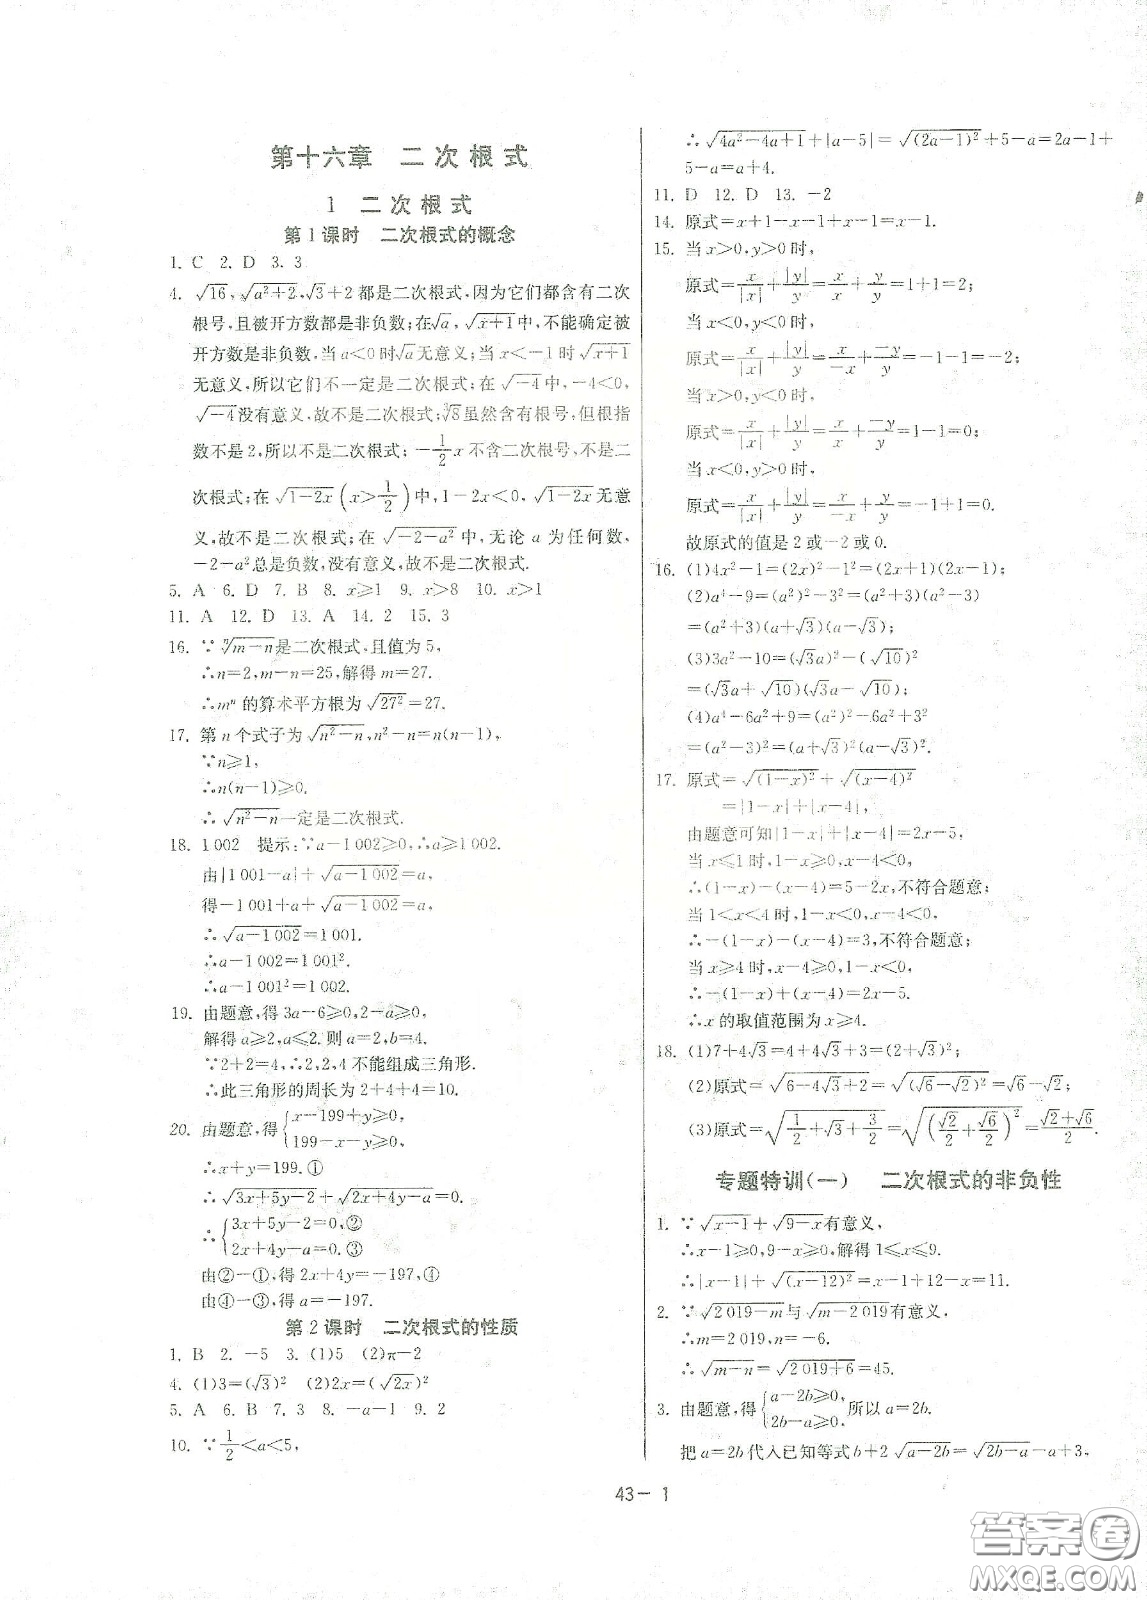 第十六章 二次根式
1 二次根式
第1课时 二次根式的概念
1. C 2. D 3. 3
4. √16,√(a²+2),√3+2都是二次根式,因为它们都含有二次
根号,且被开方数都是非负数;在√a,√(x+1)中,不能确定被
开方数是非负数,当a<0时√a无意义;当x<-1时√(x+1)
无意义,所以它们不一定是二次根式;在√(-4)中,-4<0,
√(-4)没有意义,故不是二次根式;∛8虽然含有根号,但根指
数不是2,所以不是二次根式;-1/2x不含二次根号,不是二
次根式;在√(1-2x)(x>1/2)中,1-2x<0,√(1-2x)无意
义,故不是二次根式;在√(-2-a²)中,无论a为任何数,
-2-a²总是负数,没有意义,故不是二次根式.
5. A 6. D 7. B 8. x⩾1 9. x>8 10. x>1
11. A 12. D 13. A 14. 2 15. 3
16. ∵ⁿ√(m-n)是二次根式,且值为5,
∴n=2,m-n=25,解得m=27.
∴mⁿ的算术平方根为√27²=27.
17. 第n个式子为√(n²-n),n²-n=n(n-1),
∵n⩾1,
∴n(n-1)⩾0.
∴√(n²-n)一定是二次根式.
18. 1 002 提示:∵a-1 002⩾0,∴a⩾1 002.
由|1 001-a|+√(a-1 002)=a,
得-1 001+a+√(a-1 002)=a,
∴√(a-1 002)=1 001.
∴a-1 002=1 001².
∴a-1 001²=1 002.
19. 由题意,得3a-6⩾0,2-a⩾0.
解得a⩾2,a⩽2.则a=2,b=4.
∵2+2=4,∴2,2,4不能组成三角形.
∴此三角形的周长为2+4+4=10.
20. 由题意,得{x-199+y⩾0,
199-x-y⩾0,
∴x+y=199.①
∴√(3x+5y-2)+√(2x+4y-a)=0.
∴{3x+5y-2=0,②
2x+4y-a=0.③
由②-①,得2x+4y=-197,④
由④-③,得a=-197.
第2课时 二次根式的性质
1. B 2. -5 3. (1)5 (2)π-2
4. (1)3=(√3)² (2)2x=(√(2x))²
5. A 6. B 7. 3 8. -a-1 9. 2
10. ∵1/2<a<5,
∴√(4a²-4a+1)+|a-5|=√((2a-1)²)+5-a=2a-1+
5-a=a+4.
11. D 12. D 13. -2
14. 原式=x+1-x-1+x-1=x-1.
15. 当x>0,y>0时,
原式=x/|x|+|y|/y=x/x+y/y=1+1=2;
当x<0,y<0时,
原式=x/|x|+|y|/y=x/-x+-y/y=-1-1=-2;
当x>0,y<0时,
原式=x/|x|+|y|/y=x/x+-y/y=1-1=0;
当x<0,y>0时,
原式=x/|x|+|y|/y=x/-x+y/y=-1+1=0.
故原式的值是2或-2或0.
16. (1)4x²-1=(2x)²-1²=(2x+1)(2x-1);
(2)a⁴-9=(a²)²-3²=(a²+3)(a²-3)
=(a²+3)(a+√3)(a-√3);
(3)3a²-10=(√3a)²-(√10)²
=(√3a+√10)(√3a-√10);
(4)a⁴-6a²+9=(a²)²-6a²+3²
=(a²-3)²=(a+√3)²(a-√3)².
17. 原式=√((1-x)²)+√((x-4)²)
=|1-x|+|x-4|,
由题意可知|1-x|+|x-4|=2x-5,
当x⩽1时,1-x⩾0,x-4<0,
∴(1-x)-(x-4)=5-2x,不符合题意;
当1<x<4时,1-x<0,x-4<0,
∴-(1-x)-(x-4)=3,不符合题意;
当x⩾4时,x-4⩾0,1-x<0,
∴-(1-x)+(x-4)=2x-5.
∴x的取值范围为x⩾4.
18. (1)7+4√3=4+4√3+3=(2+√3)²;
(2)原式=√(6-4√3+2)=√((√6-√2)²)=√6-√2;
(3)原式=√(1/2+√3+3/2)=√((√2/2+√6/2)²)=(√2+√6)/2.
专题特训(一) 二次根式的非负性
1. ∵√(x-1)+√(9-x)有意义,
∴x-1⩾0,9-x⩾0,解得1⩽x⩽9.
∴|x-1|+√((x-12)²)=x-1+12-x=11.
2. ∵√(2 019-m)与√(m-2 019)有意义,
∴m=2 019,n=-6.
∴√(m-n)=√(2 019+6)=45.
3. 由题意,得{a-2b⩾0, 所以a=2b.
2b-a⩾0,
把a=2b代入已知等式b+2√(a-2b)=√(2b-a)-a+3,
43-1
答案卷
MXQE.COM